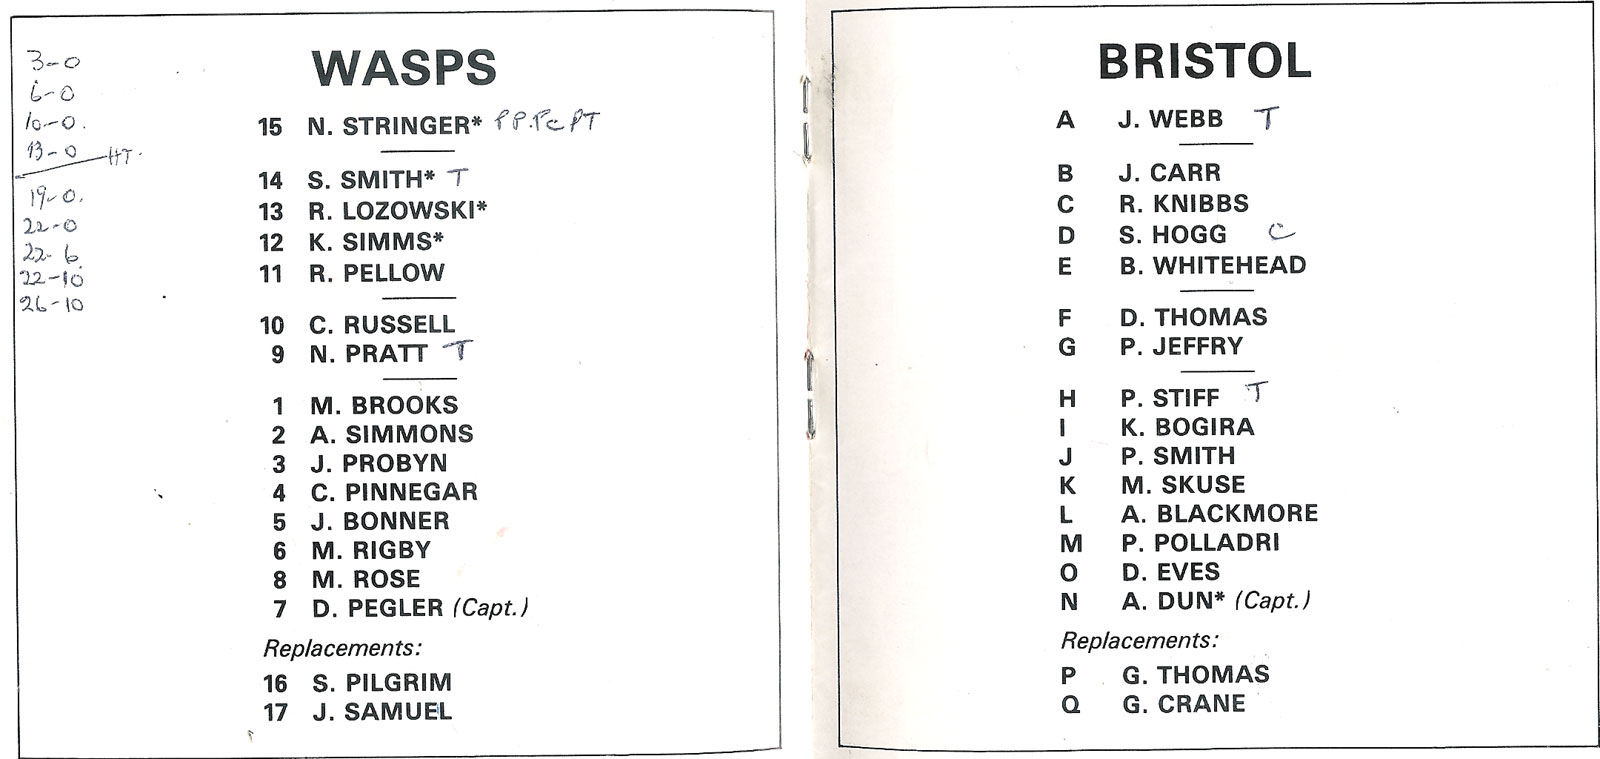 3-0
6-0
10-0.
13-0 HT.
19-0.
22-0
22-6
22-10
26-10
WASPS
15 N. STRINGER* PP.PcPT
14 S. SMITH* T
13 R. LOZOWSKI*
12 K. SIMMS*
11 R. PELLOW
10 C. RUSSELL
9 N. PRATT T
1 M. BROOKS
2 A. SIMMONS
3 J. PROBYN
4 C. PINNEGAR
5 J. BONNER
6 M. RIGBY
8 M. ROSE
7 D. PEGLER (Capt.)
Replacements:
16 S. PILGRIM
17 J. SAMUEL
BRISTOL
A J. WEBB T
B J. CARR
C R. KNIBBS
D S. HOGG C
E B. WHITEHEAD
F D. THOMAS
G P. JEFFRY
H P. STIFF T
I K. BOGIRA
J P. SMITH
K M. SKUSE
L A. BLACKMORE
M P. POLLADRI
O D. EVES
N A. DUN* (Capt.)
Replacements:
P G. THOMAS
Q G. CRANE